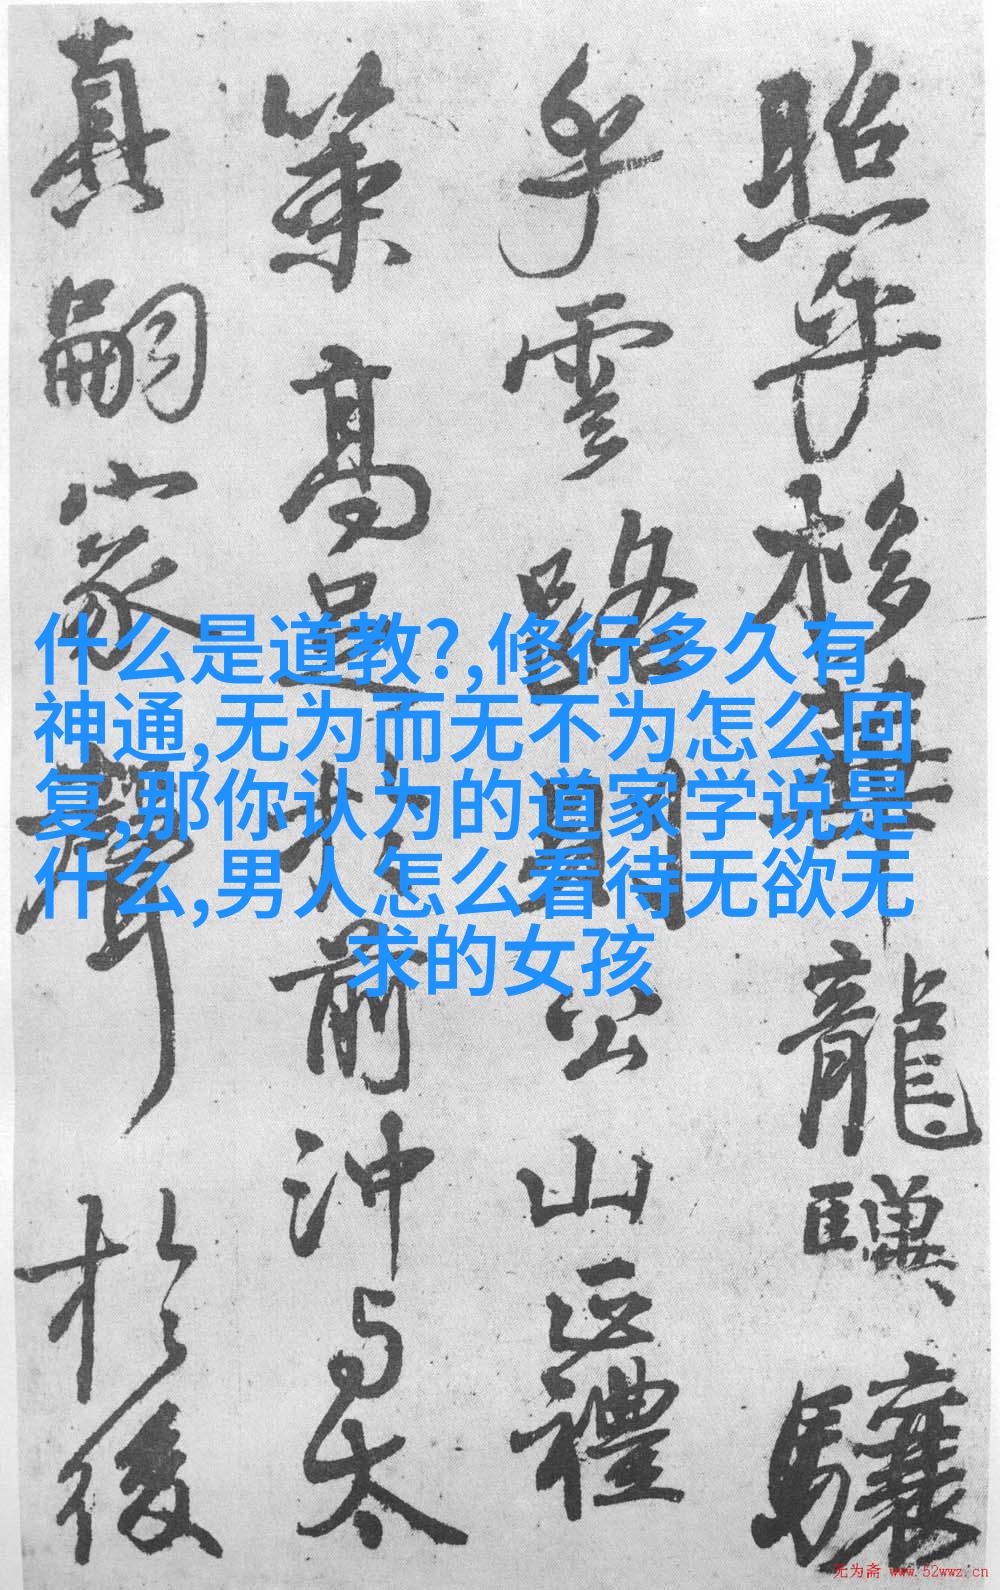 照乎移華龍驥驤
乎雲路則公山正禮
策高足於前沖与太
真嗣家聲於後
什么是道教?,修行多久有
神通,无为而无不为怎么回
复,那你认为的道家学说是
什么,男人怎么看待无欲无
求的女孩
无为斋 www.52wwz.cn